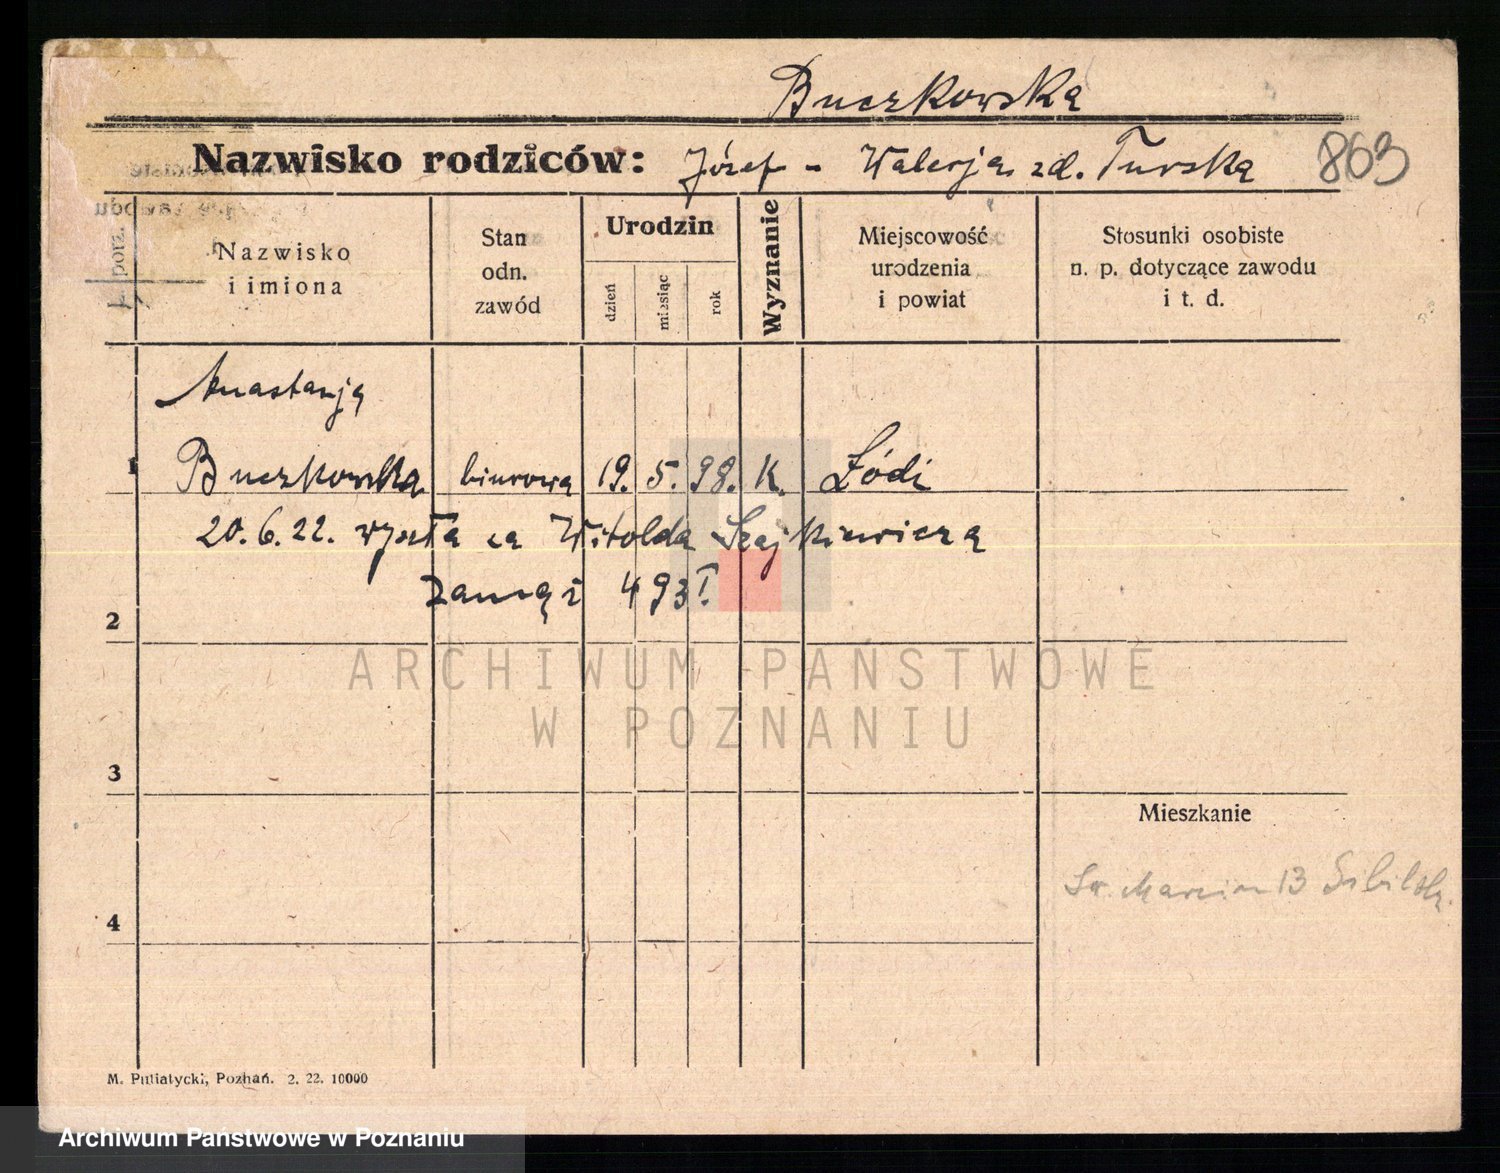 Buczkowska
Nazwisko rodziców: Józef - Walerja zd. Turska 863
porz.
Nazwisko
i imiona
Stan
odn.
zawód
Urodzin
dzień
miesiąc
rok
Wyznanie
Miejscowość
urodzenia
i powiat
Stosunki osobiste
n. p. dotyczące zawodu
i t. d.
Anastazją
1 Buczkowska biurowa 19. 5. 98. K. Łódź
20.6.22. wyszła za Witolda Szajkiewicza
zamąż 493 I.
2
ARCHIWUM PAŃSTWOWE
W POZNANIU
3
Mieszkanie
Św. Marcin 13
4
M. Putiatycki, Poznań. 2. 22. 10000
Archiwum Państwowe w Poznaniu